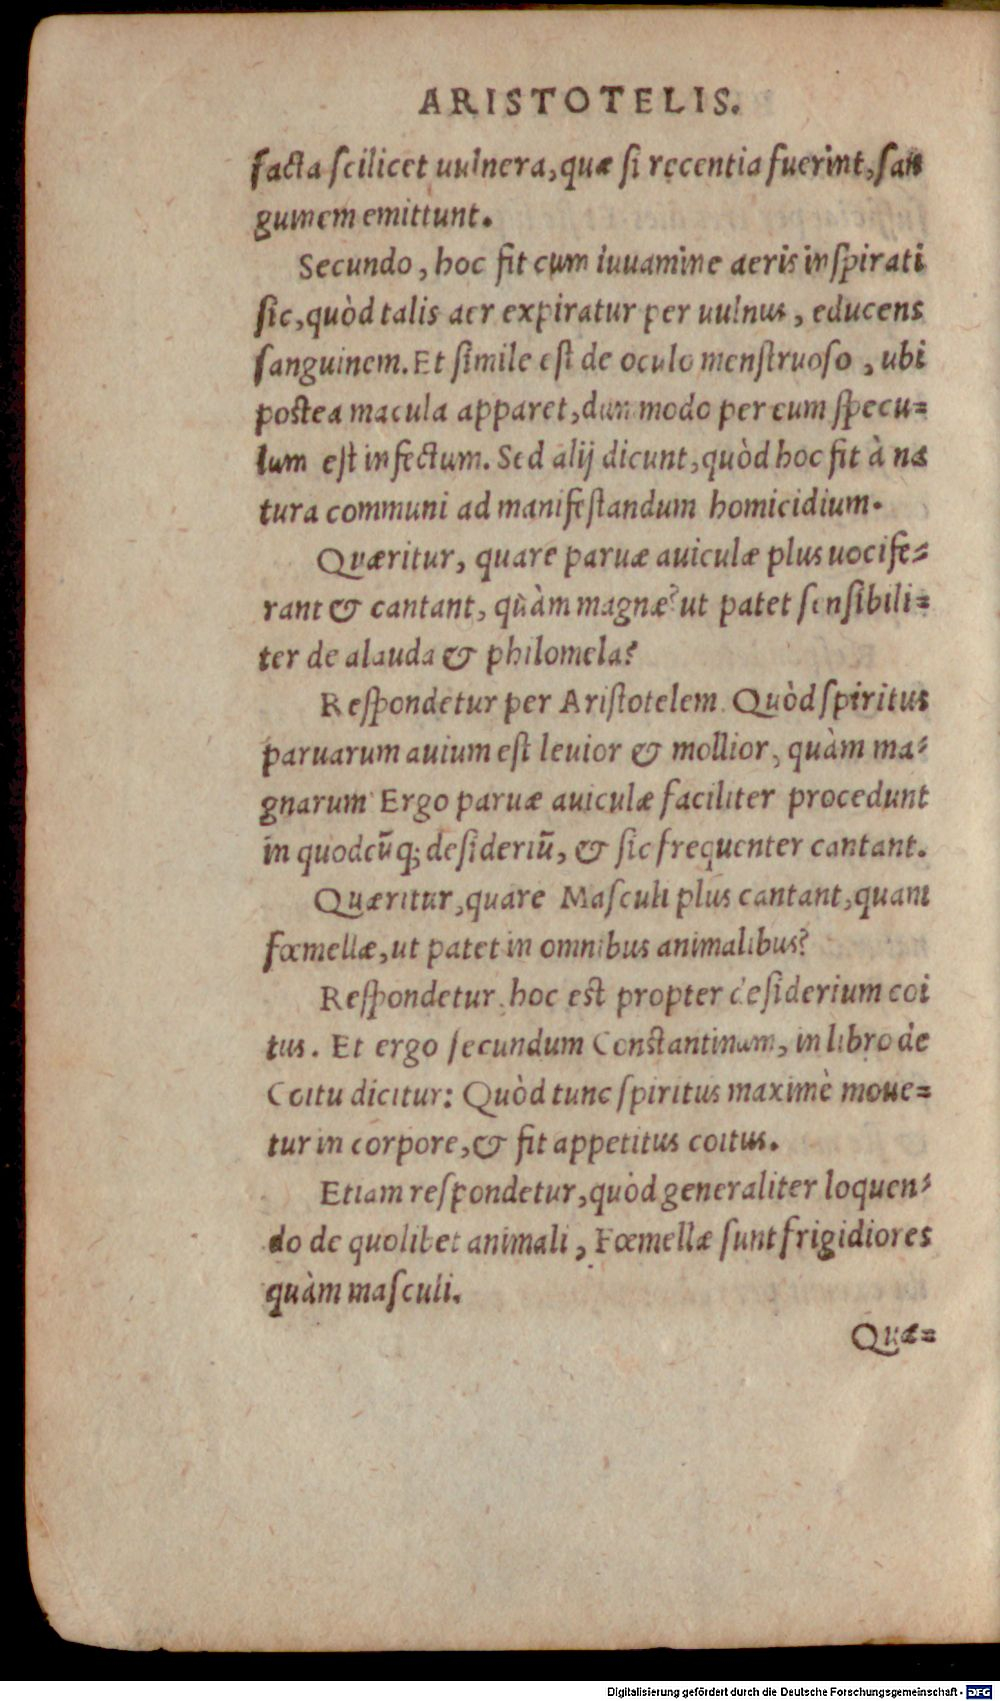 ARISTOTELIS.
facta scilicet uulnera, quæ si recentia fuerint, san
guinem emittunt.
Secundo, hoc fit cum iuuamine aeris inspirati
sic, quòd talis aer expiratur per uulnus, educens
sanguinem. Et simile est de oculo menstruoso, ubi
postea macula apparet, dummodo per eum specu=
lum est infectum. Sed alij dicunt, quòd hoc fit à na
tura communi ad manifestandum homicidium.
Quæritur, quare paruæ auiculæ plus uocife=
rant & cantant, quàm magnæ? ut patet sensibili=
ter de alauda & philomela?
Respondetur per Aristotelem. Quòd spiritus
paruarum auium est leuior & mollior, quàm ma=
gnarum Ergo paruæ auiculæ faciliter procedunt
in quodcũq; desideriũ, & sic frequenter cantant.
Quæritur, quare Masculi plus cantant, quam
fœmellæ, ut patet in omnibus animalibus?
Respondetur. hoc est propter desiderium coi
tus. Et ergo secundum Constantinum, in libro de
Coitu dicitur: Quòd tunc spiritus maximè moue=
tur in corpore, & fit appetitus coitus.
Etiam respondetur, quòd generaliter loquen=
do de quolibet animali, Fœmellæ sunt frigidiores
quàm masculi.
Quæ=
Digitalisierung gefördert durch die Deutsche Forschungsgemeinschaft - DFG